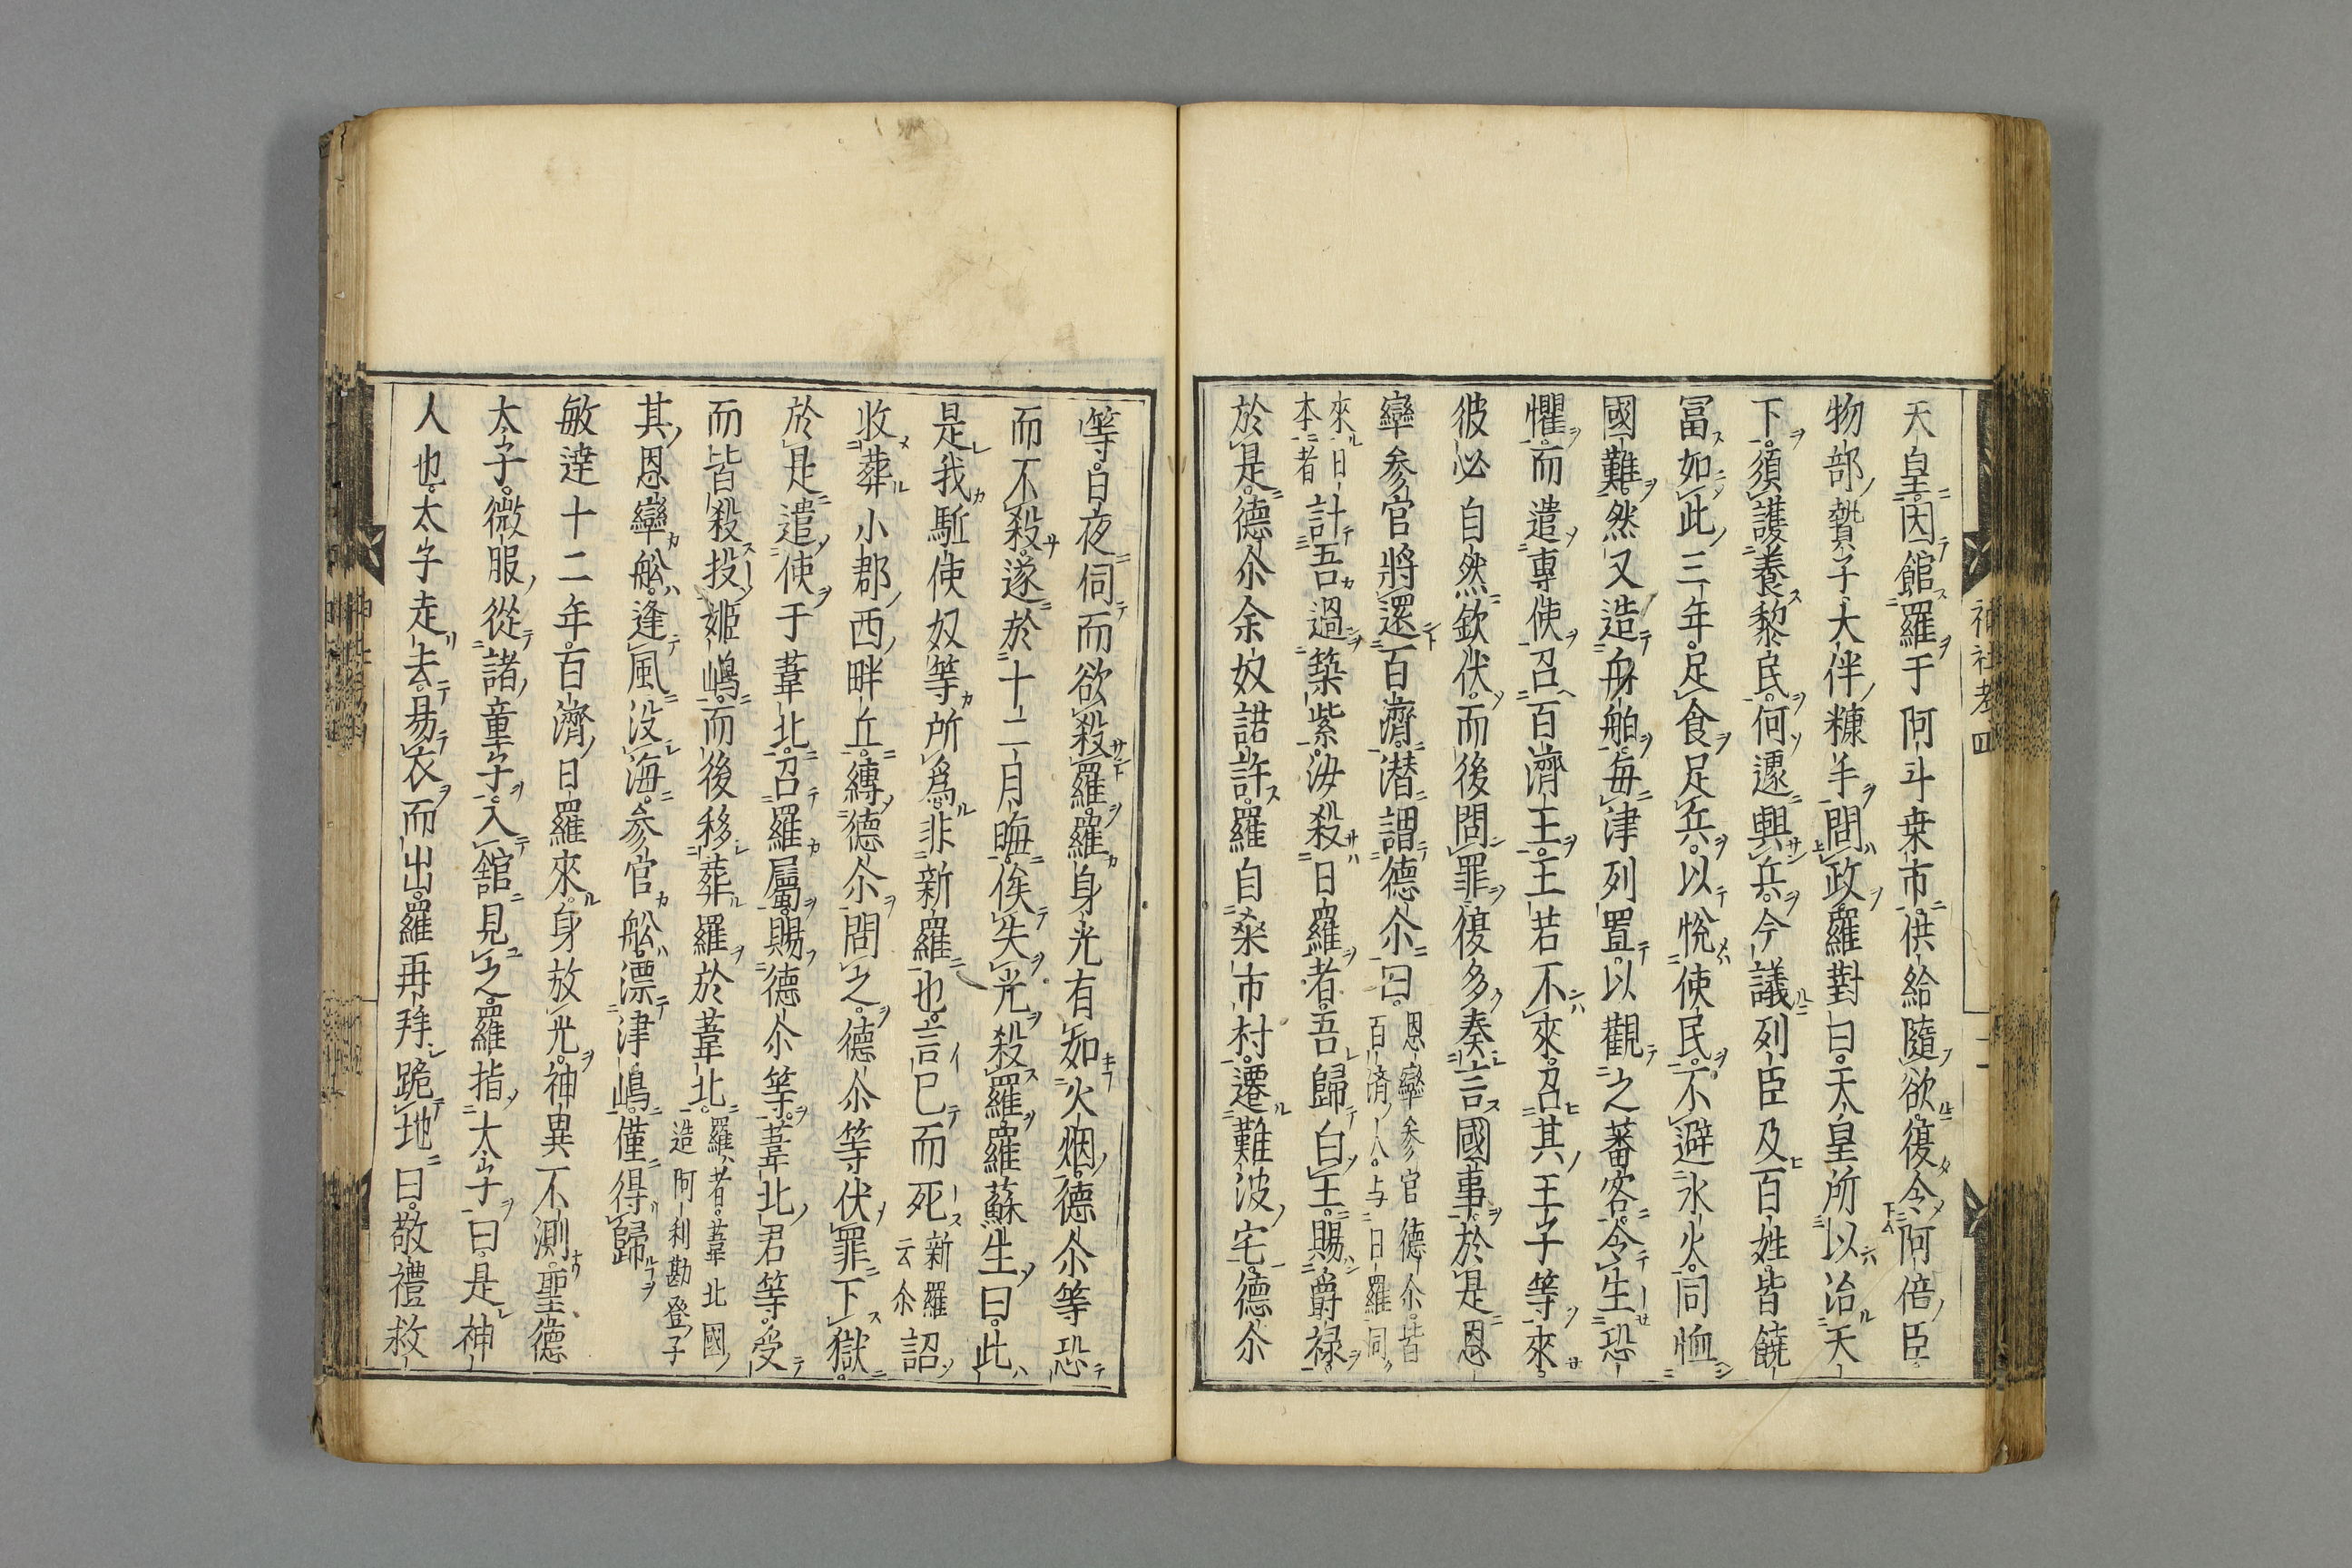 天皇因館羅于阿斗桒市供給隨欲復令阿倍臣
物部贄子大伴糠手問政羅對曰天皇所以治天
下須護養黎民何遽興兵今議列臣及百姓皆饒
冨如此三年足食足兵以悦使民不避水火同恤
國難然又造舟舶毎津列置以觀之蕃客令生恐
懼而遣專使召百濟王王若不來召其王子等來
彼必自然欽伏而後問罪復多奏言國事於是恩
率参官將還百濟潜謂德尒曰恩率参官德尒皆
百済人与日羅同
來日
本者計吾過築紫汝殺日羅者吾歸白王賜爵禄
於是德尒余奴諾許羅自桒市村遷難波宅德尒
神社考四
等日夜伺而欲殺羅羅身光有如火烟德尒等恐
而不殺遂於十二月晦俟失光殺羅羅蘇生曰此
是我駈使奴等所爲非新羅也言已而死新羅
云尒詔
收葬小郡西畔丘縛德尒問之德尒等伏罪下獄
於是遣使于葦北召羅屬賜德尒等葦北君等受
而皆殺投姫嶋而後移葬羅於葦北羅者葦北國
造阿利勘登子
其恩率舩逢風没海参官舩漂津嶋僅得歸
敏達十二年百濟日羅來身放光神異不測聖德
太子微服從諸童子入館見之羅指太子曰是神
人也太子走去易衣而出羅再拝跪地曰敬禮救